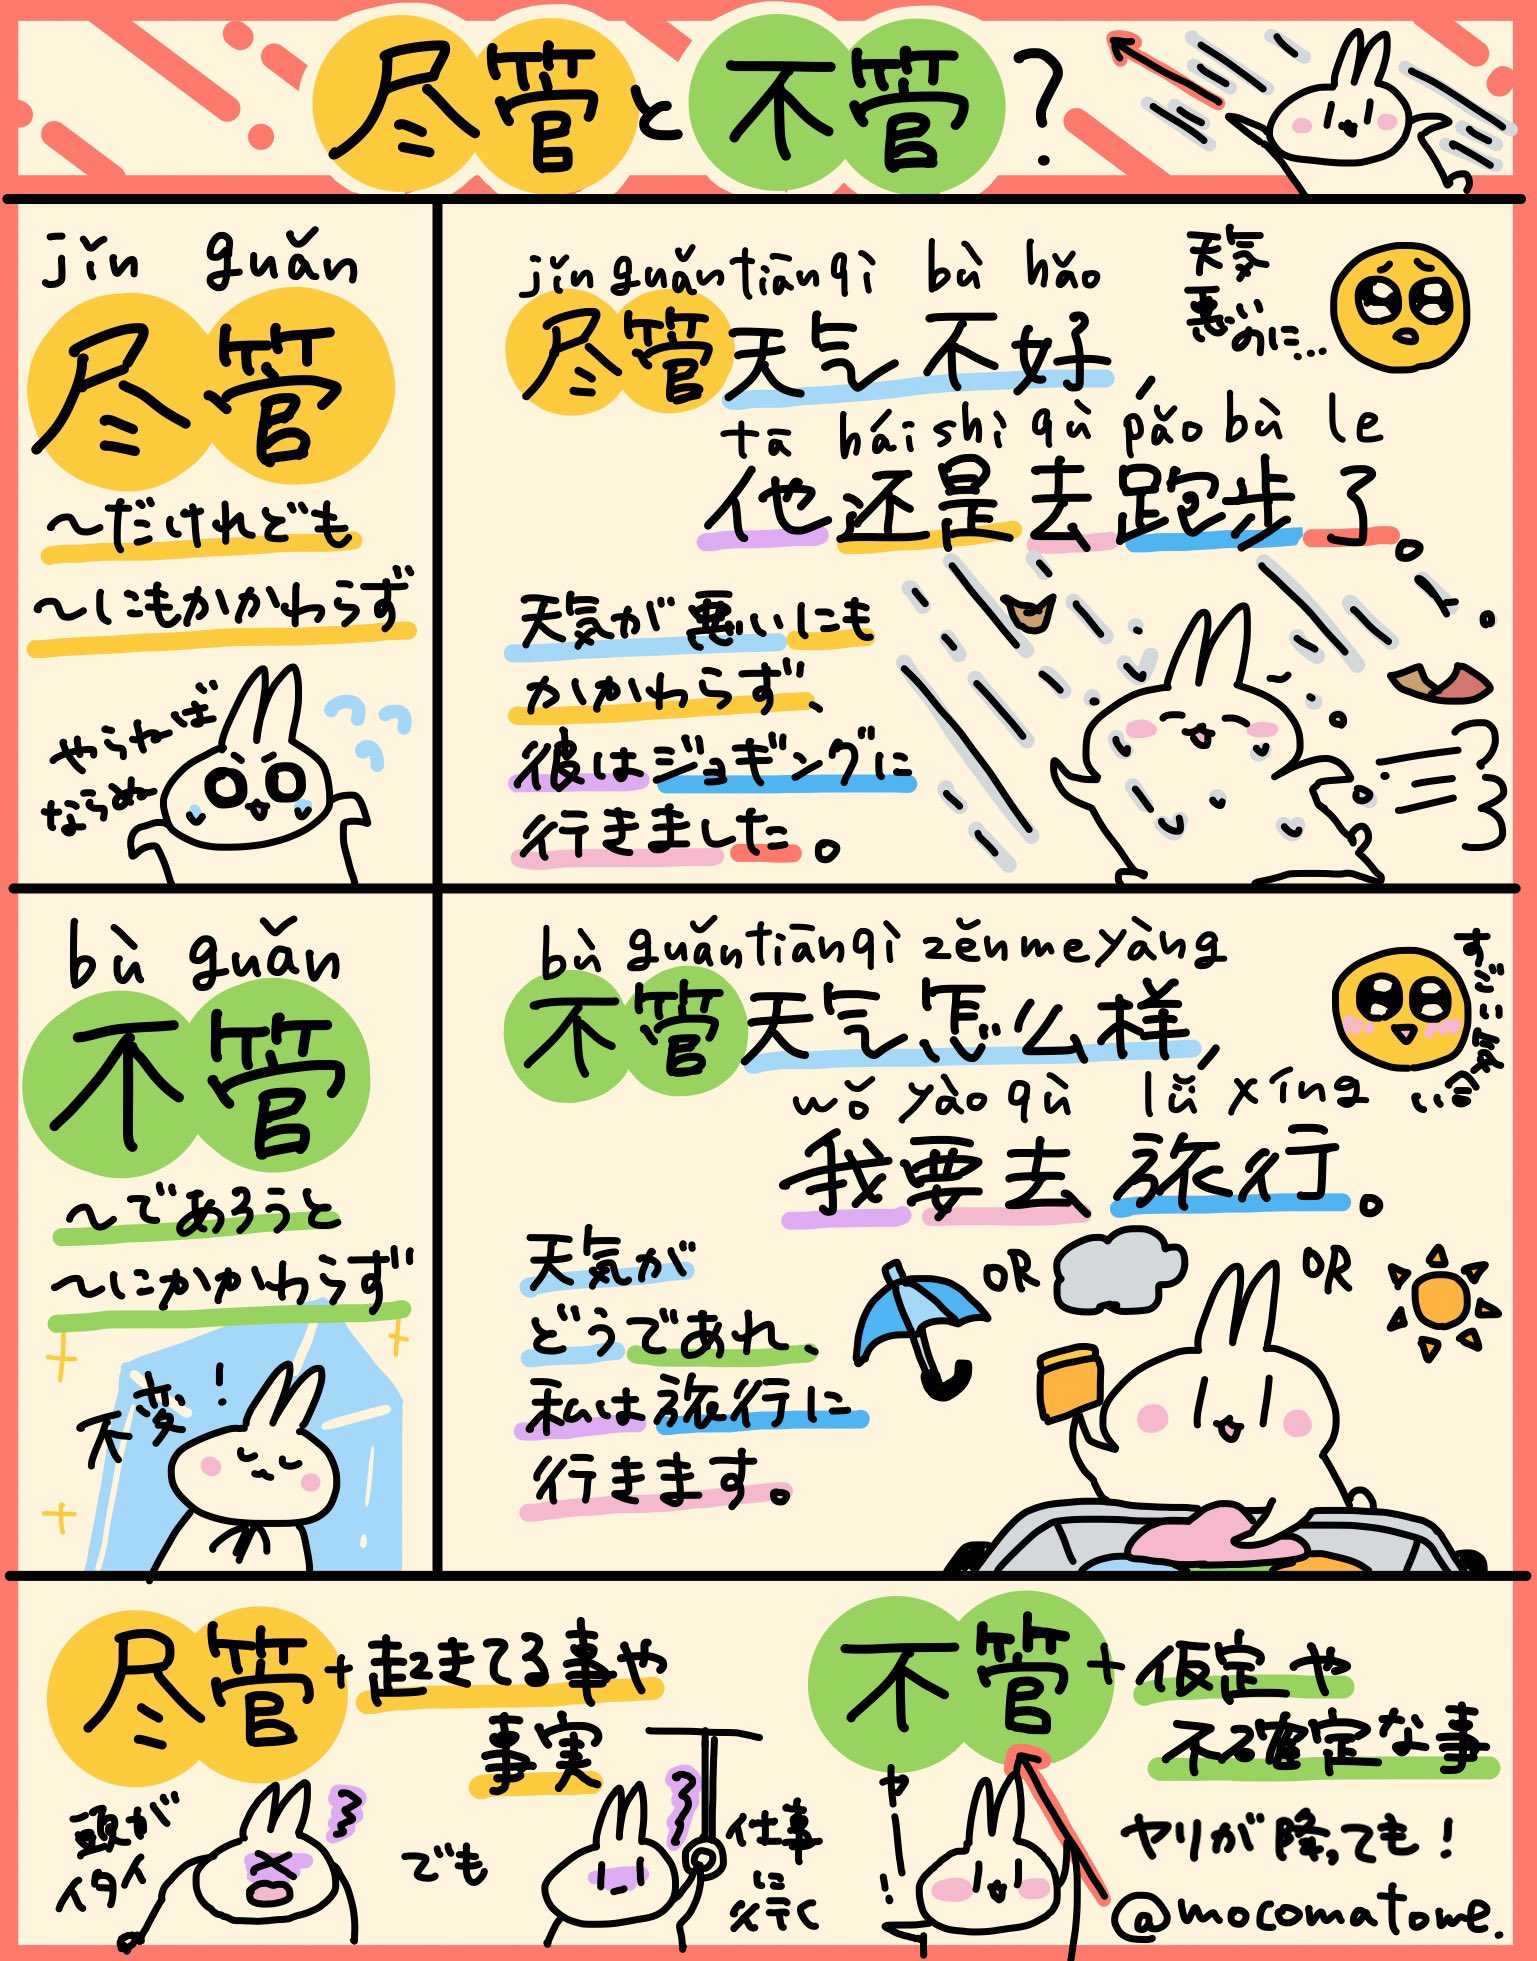 尽管と不管?
jǐn guǎn
尽管
〜だけれども
〜にもかかわらず
やらねば
ならぬ
jǐn guǎn tiān qì bù hǎo
尽管天气不好
天気
悪い
のに...
tā hái shì qù pǎo bù le
他还是去跑步了。
天気が悪いにも
かかわらず、
彼はジョギングに
行きました。
bù guǎn
不管
〜であろうと
〜にかかわらず
不変!
bù guǎn tiān qì zěn me yàng
不管天气怎么样,
wǒ yào qù lǚ xíng
我要去旅行。
天気が
どうであれ、
私は旅行に
行きます。
OR
OR
尽管+起きてる事や
事実
頭が
イタイ
でも
仕事
に
行く
不管+仮定や
不確定な事
ヤー!
ヤリが降っても!
@mocomatome.